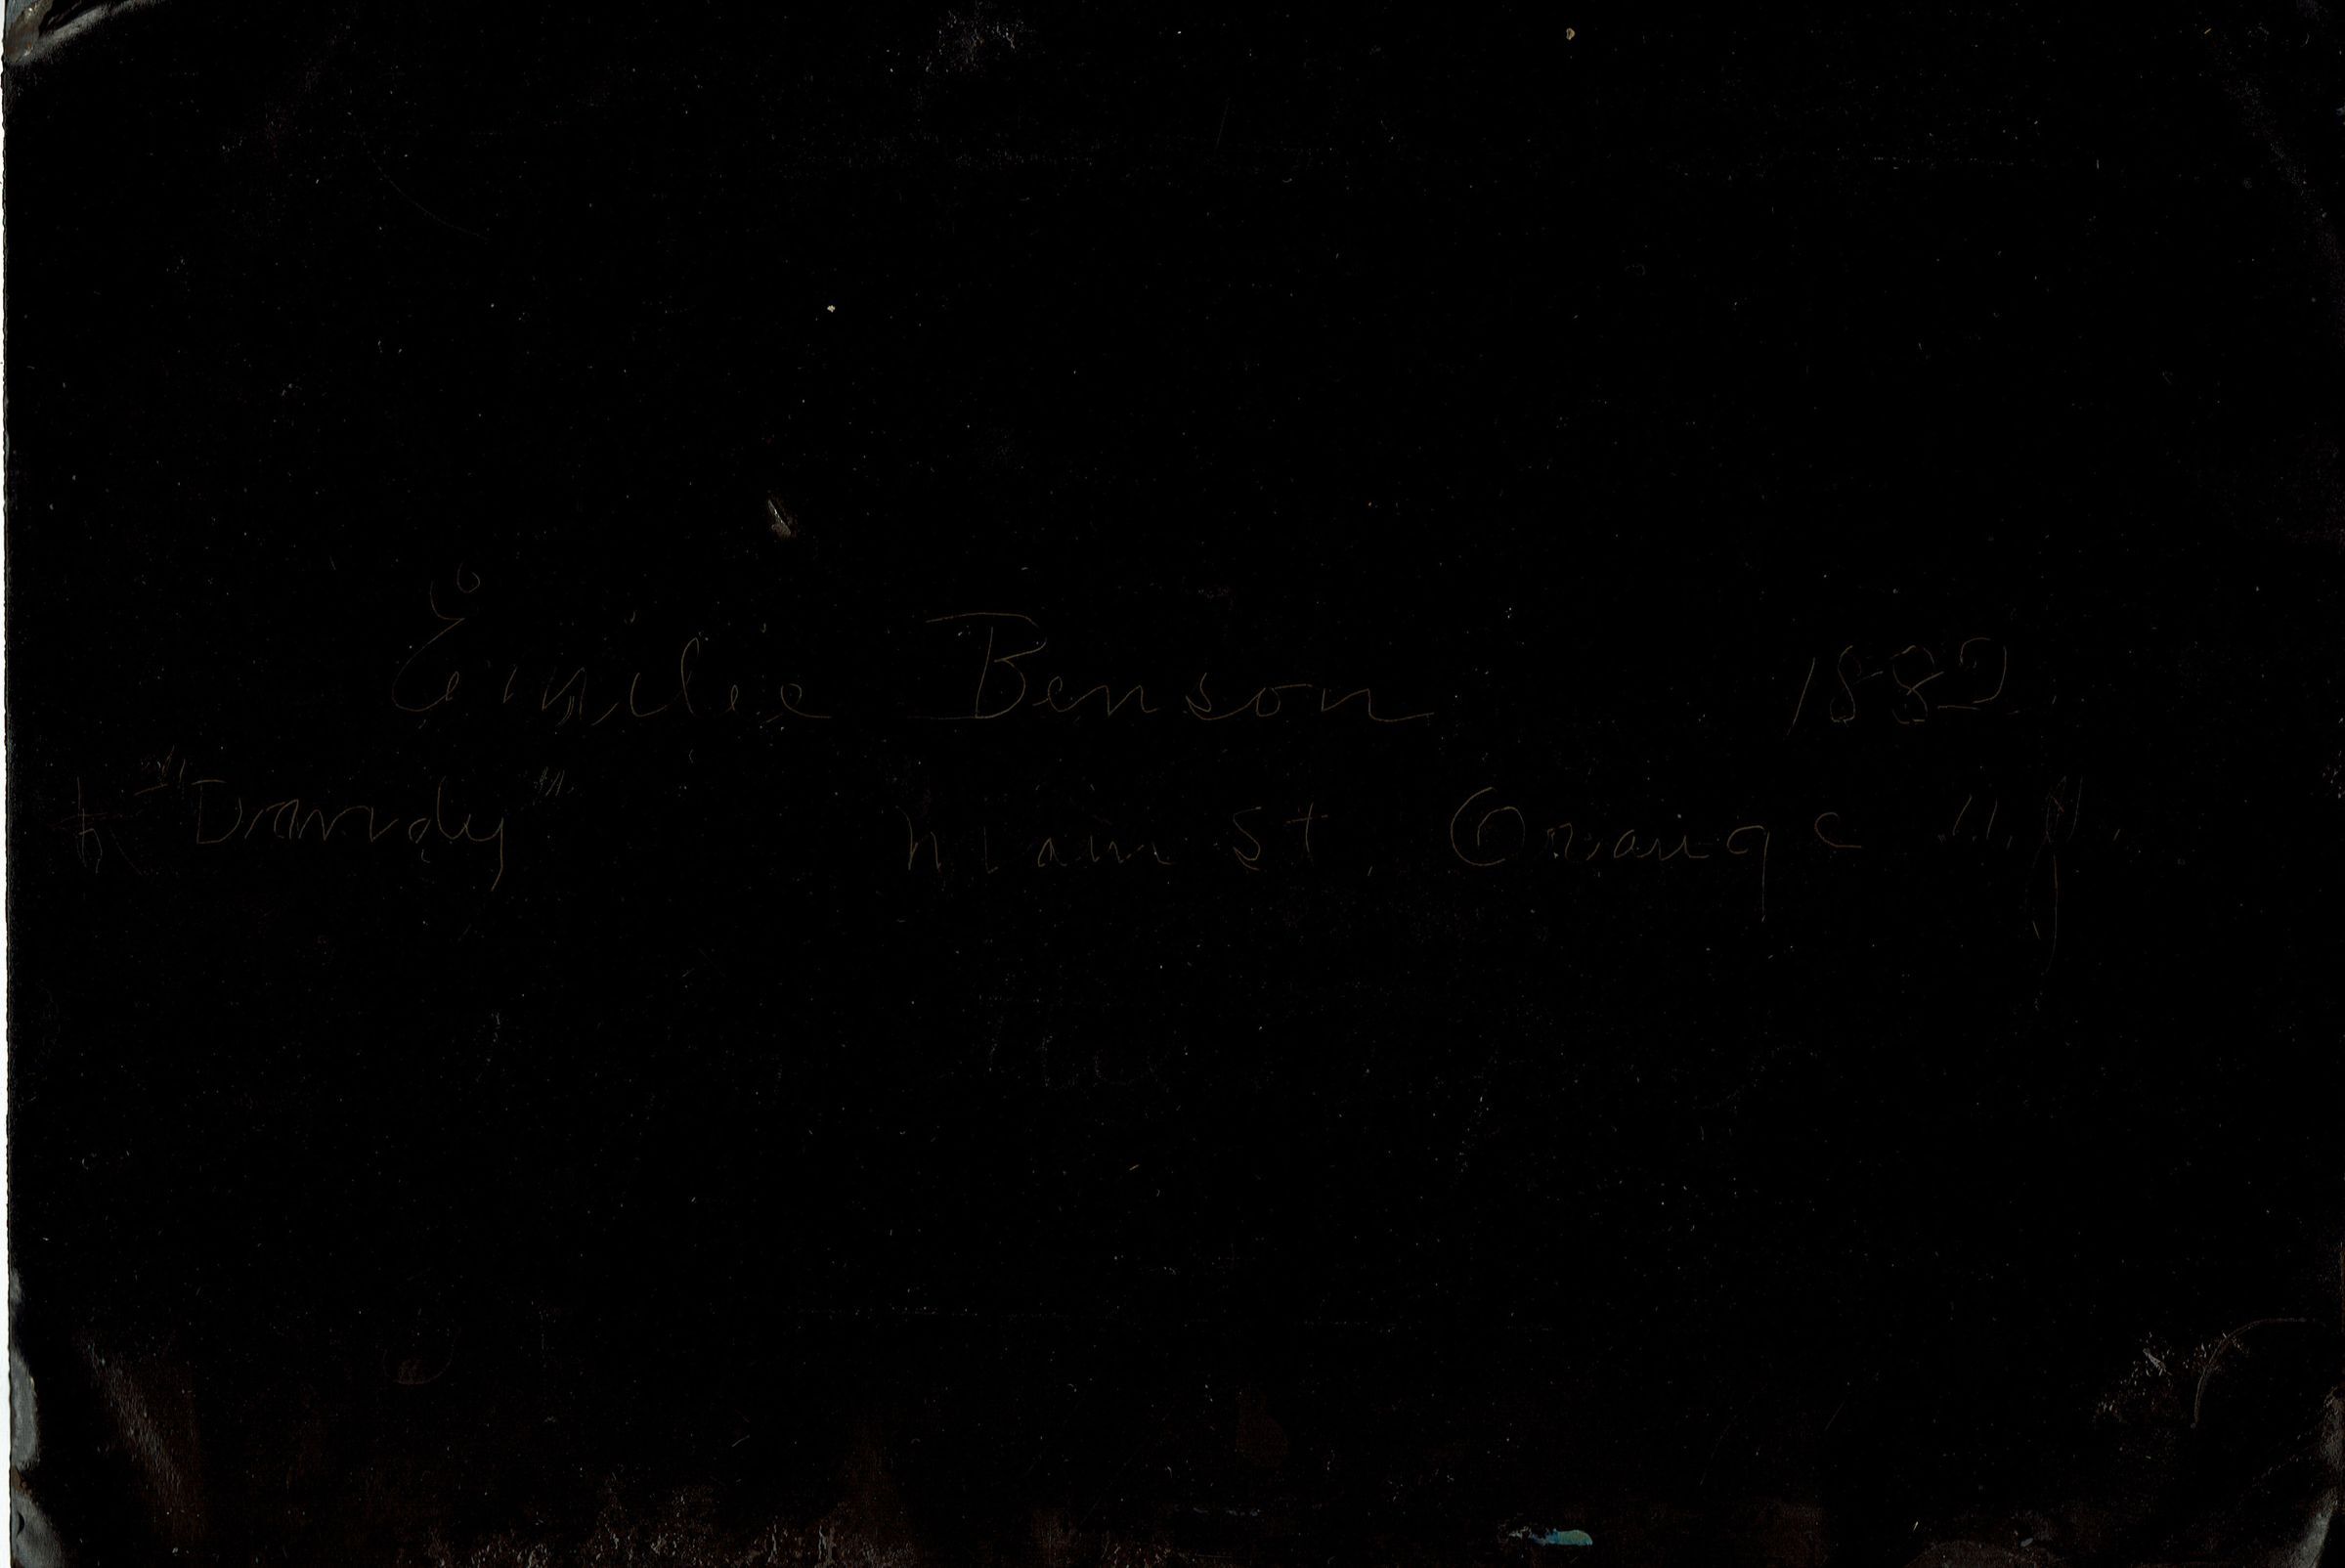 Emilie Benson 1882
& "Dandy" Main St. Orange N.J.